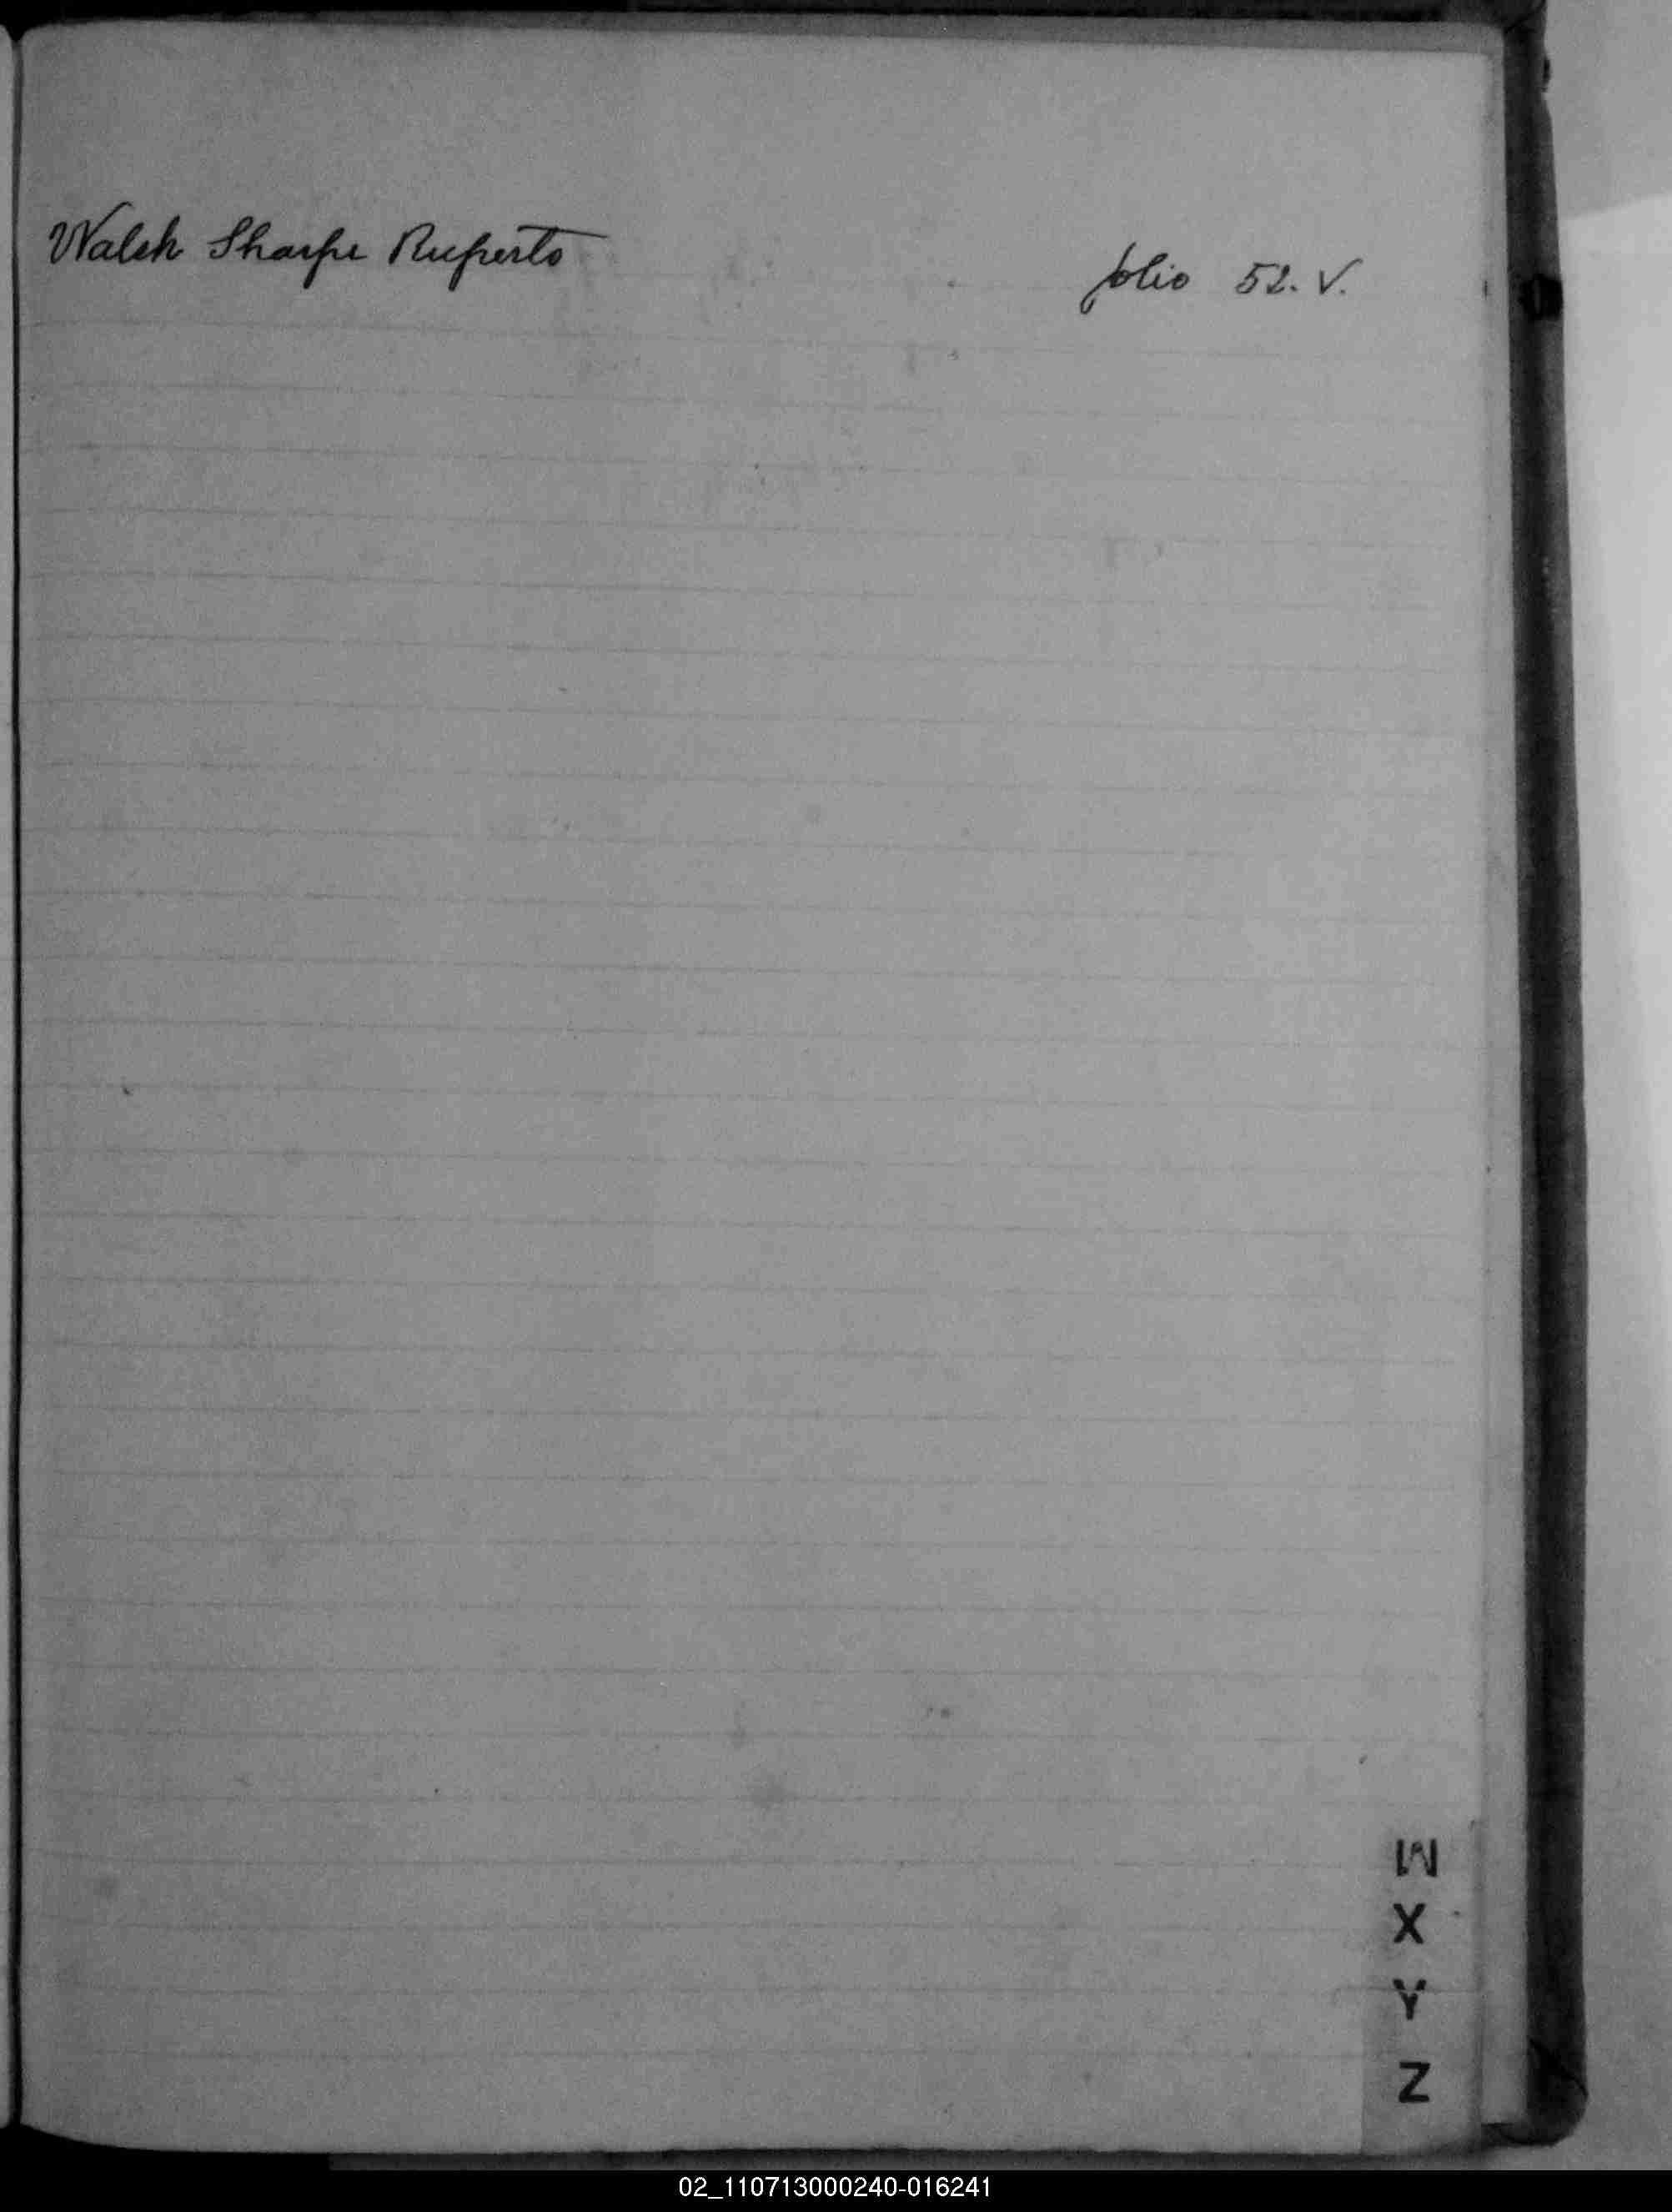 Walsh Sharpe Ruperto folio 52. V.
W
X
Y
Z
02_110713000240-016241